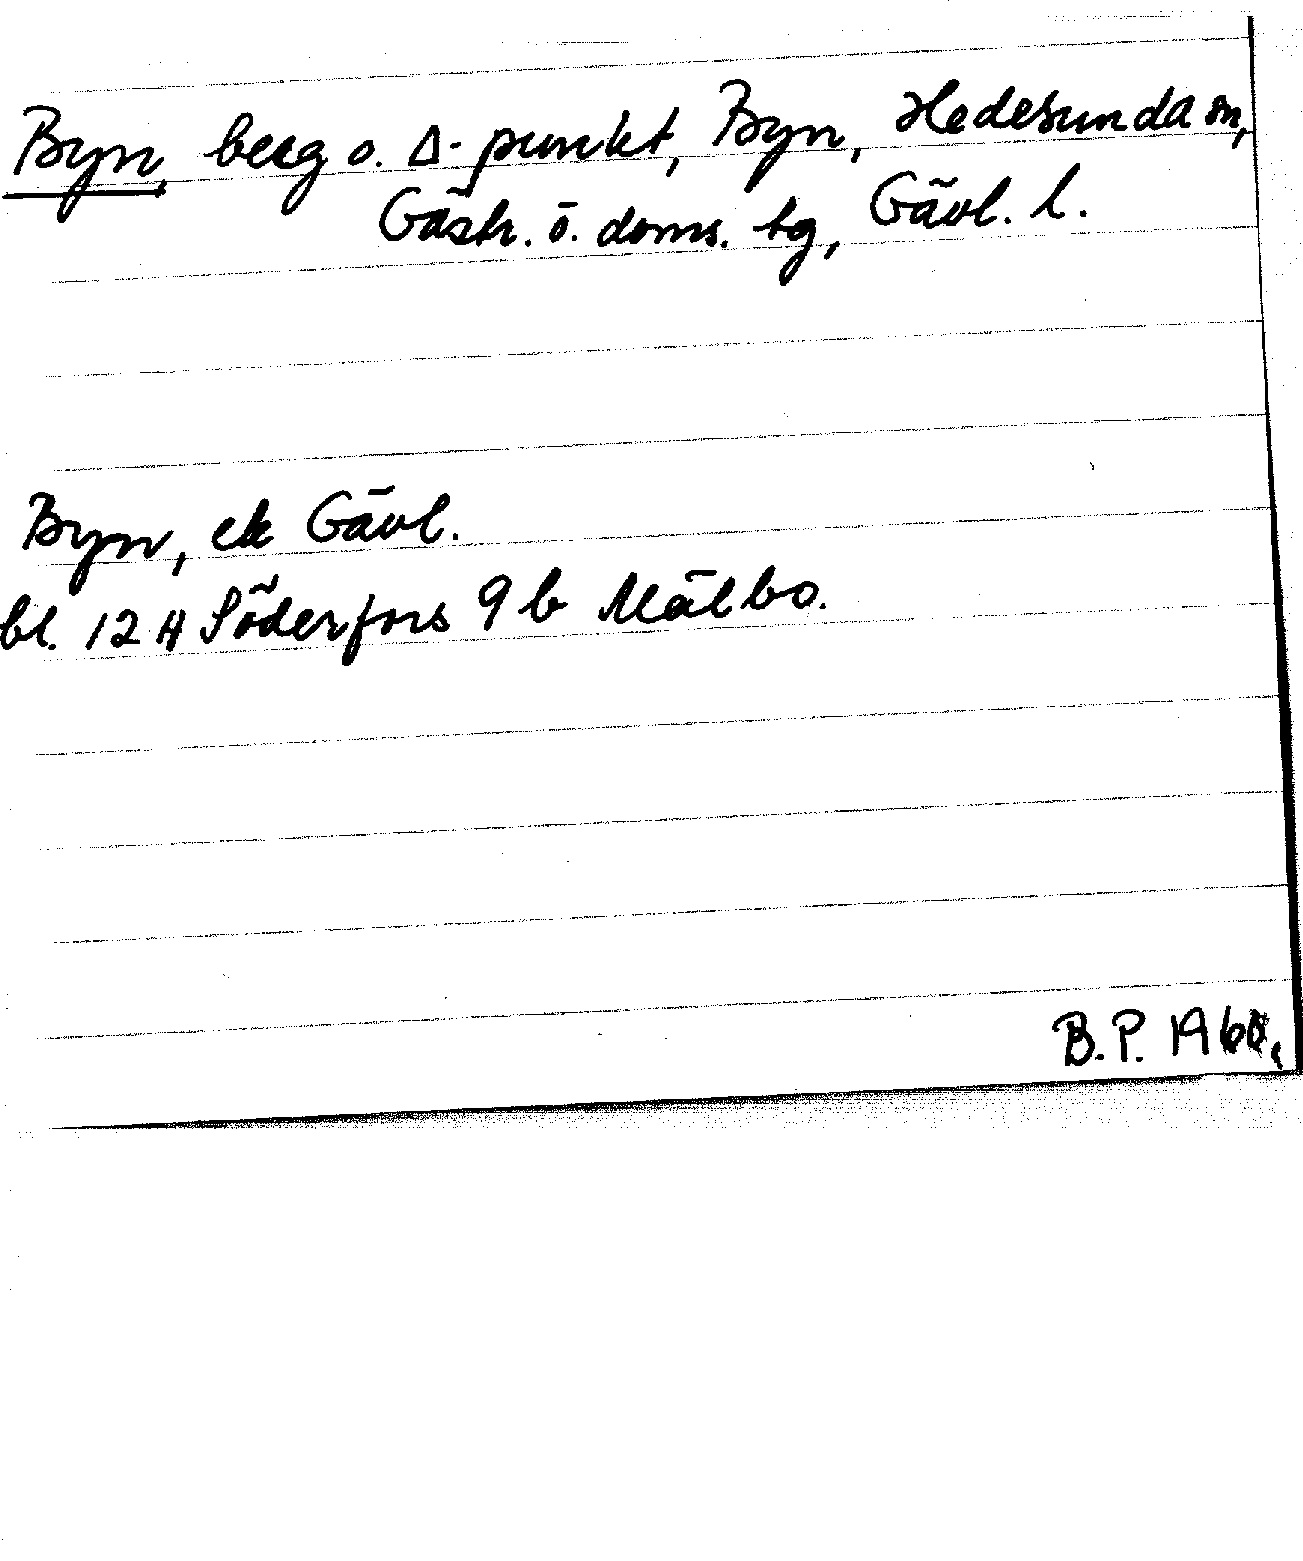 Byn, berg o. Δ-punkt, Byn, Hedesunda sn,
Gästr. ö. doms. tg, Gävl. l.
Byn, ek Gävl.
bl. 12 H Söderfors 9 b Mälbo.
B.P. 1960.